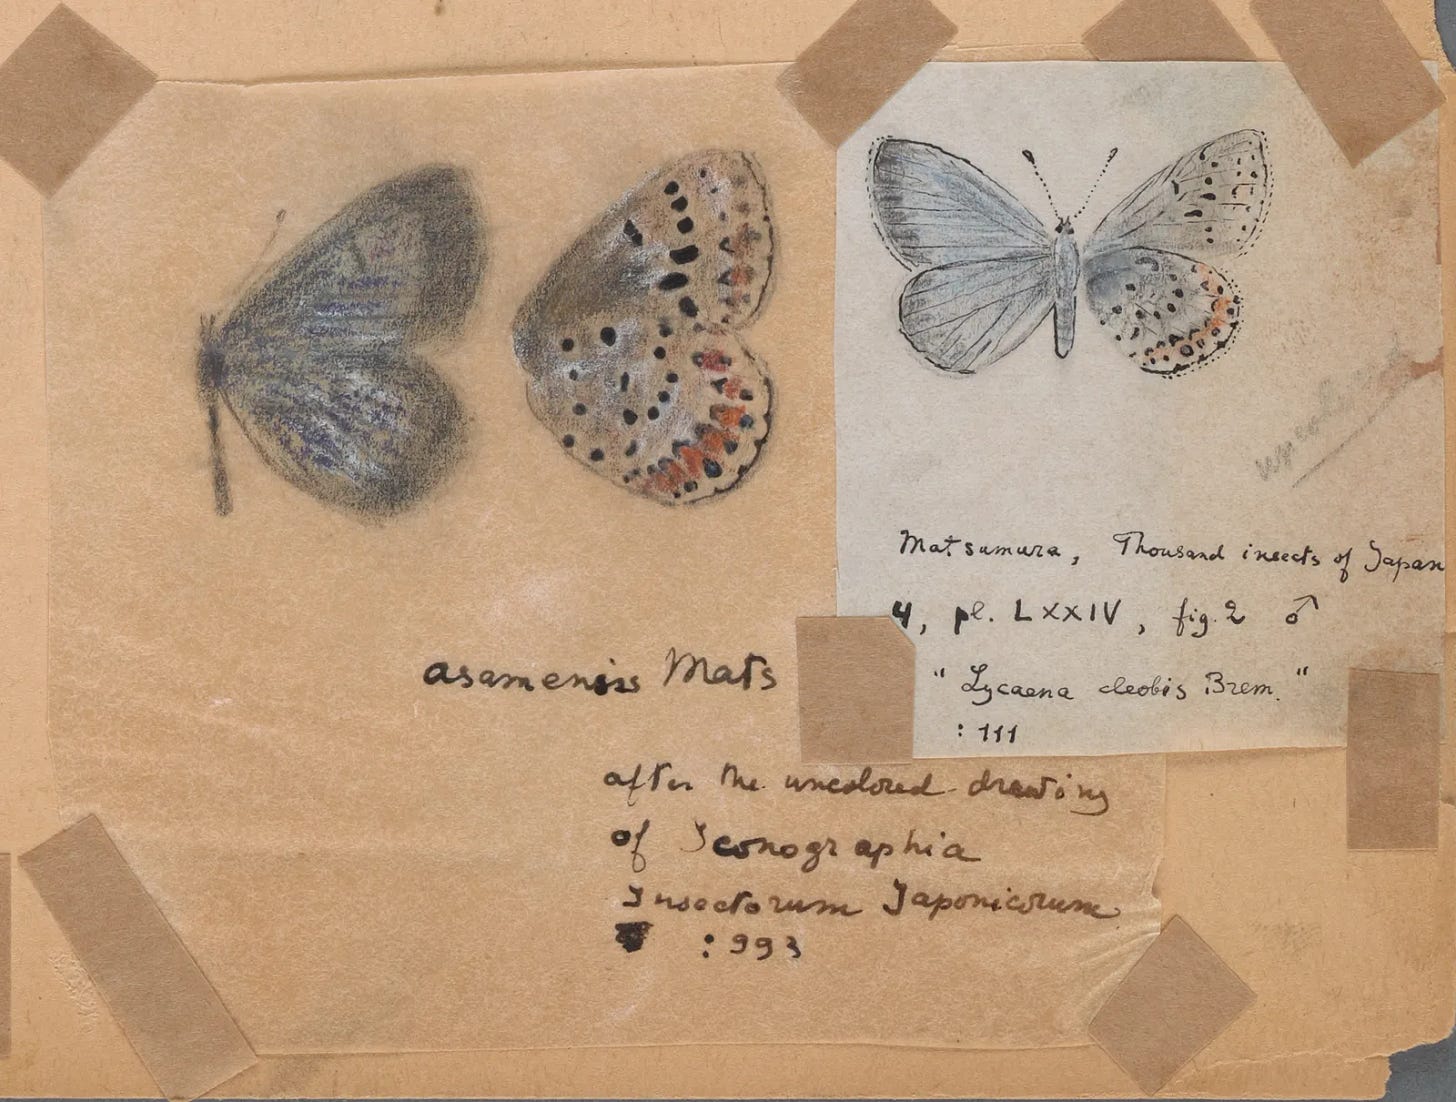 asamensis Mats
after the uncolored drawing
of Iconographia
Insectorum Japonicorum
: 993
Matsumura, Thousand insects of Japan
4, pl. LXXIV, fig. 2 ♂
"Lycaena cleobis Brem."
: 111